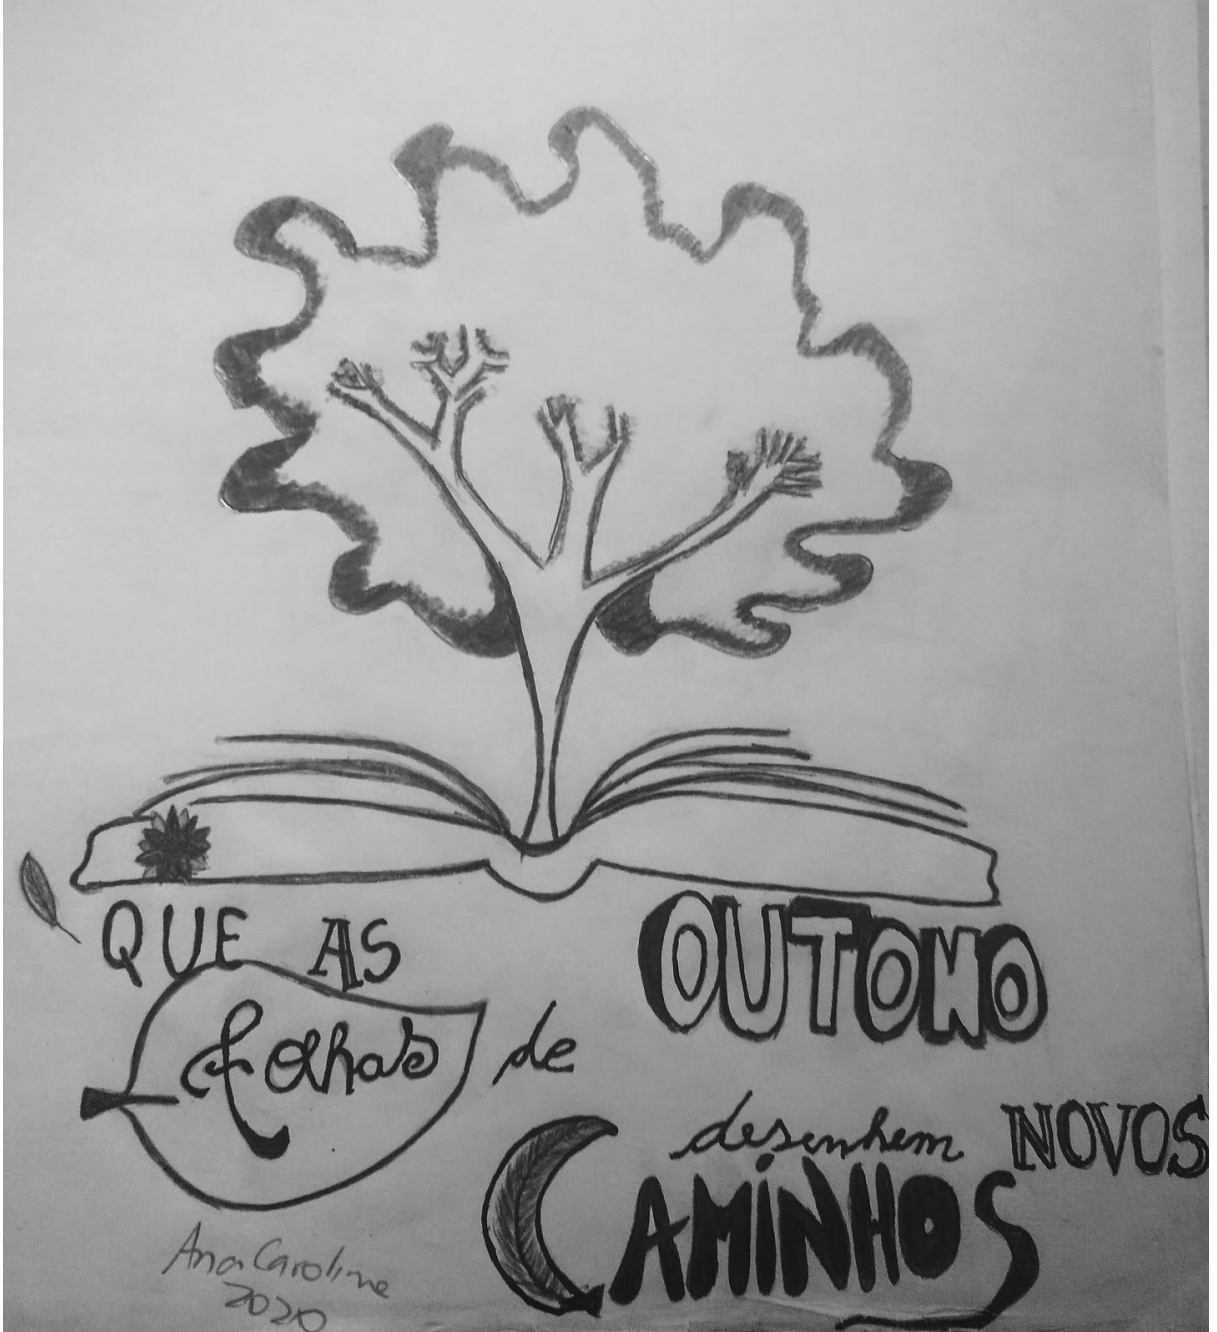 QUE AS
folhas de OUTONO
desenhem NOVOS
CAMiNHOS
Ana Caroline
2020